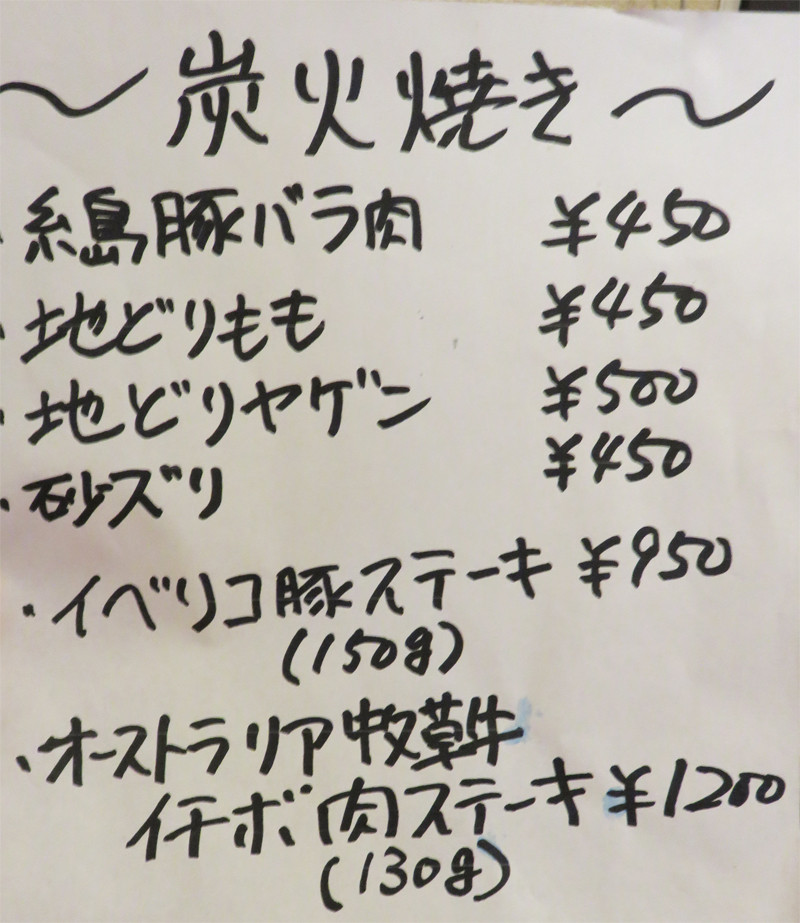 ～炭火焼き～
・糸島豚バラ肉 ¥450
・地どりもも ¥450
・地どりヤゲン ¥500
・砂ズリ ¥450
・イベリコ豚ステーキ ¥950
(150g)
・オーストラリア牧草牛
イチボ肉ステーキ ¥1200
(130g)